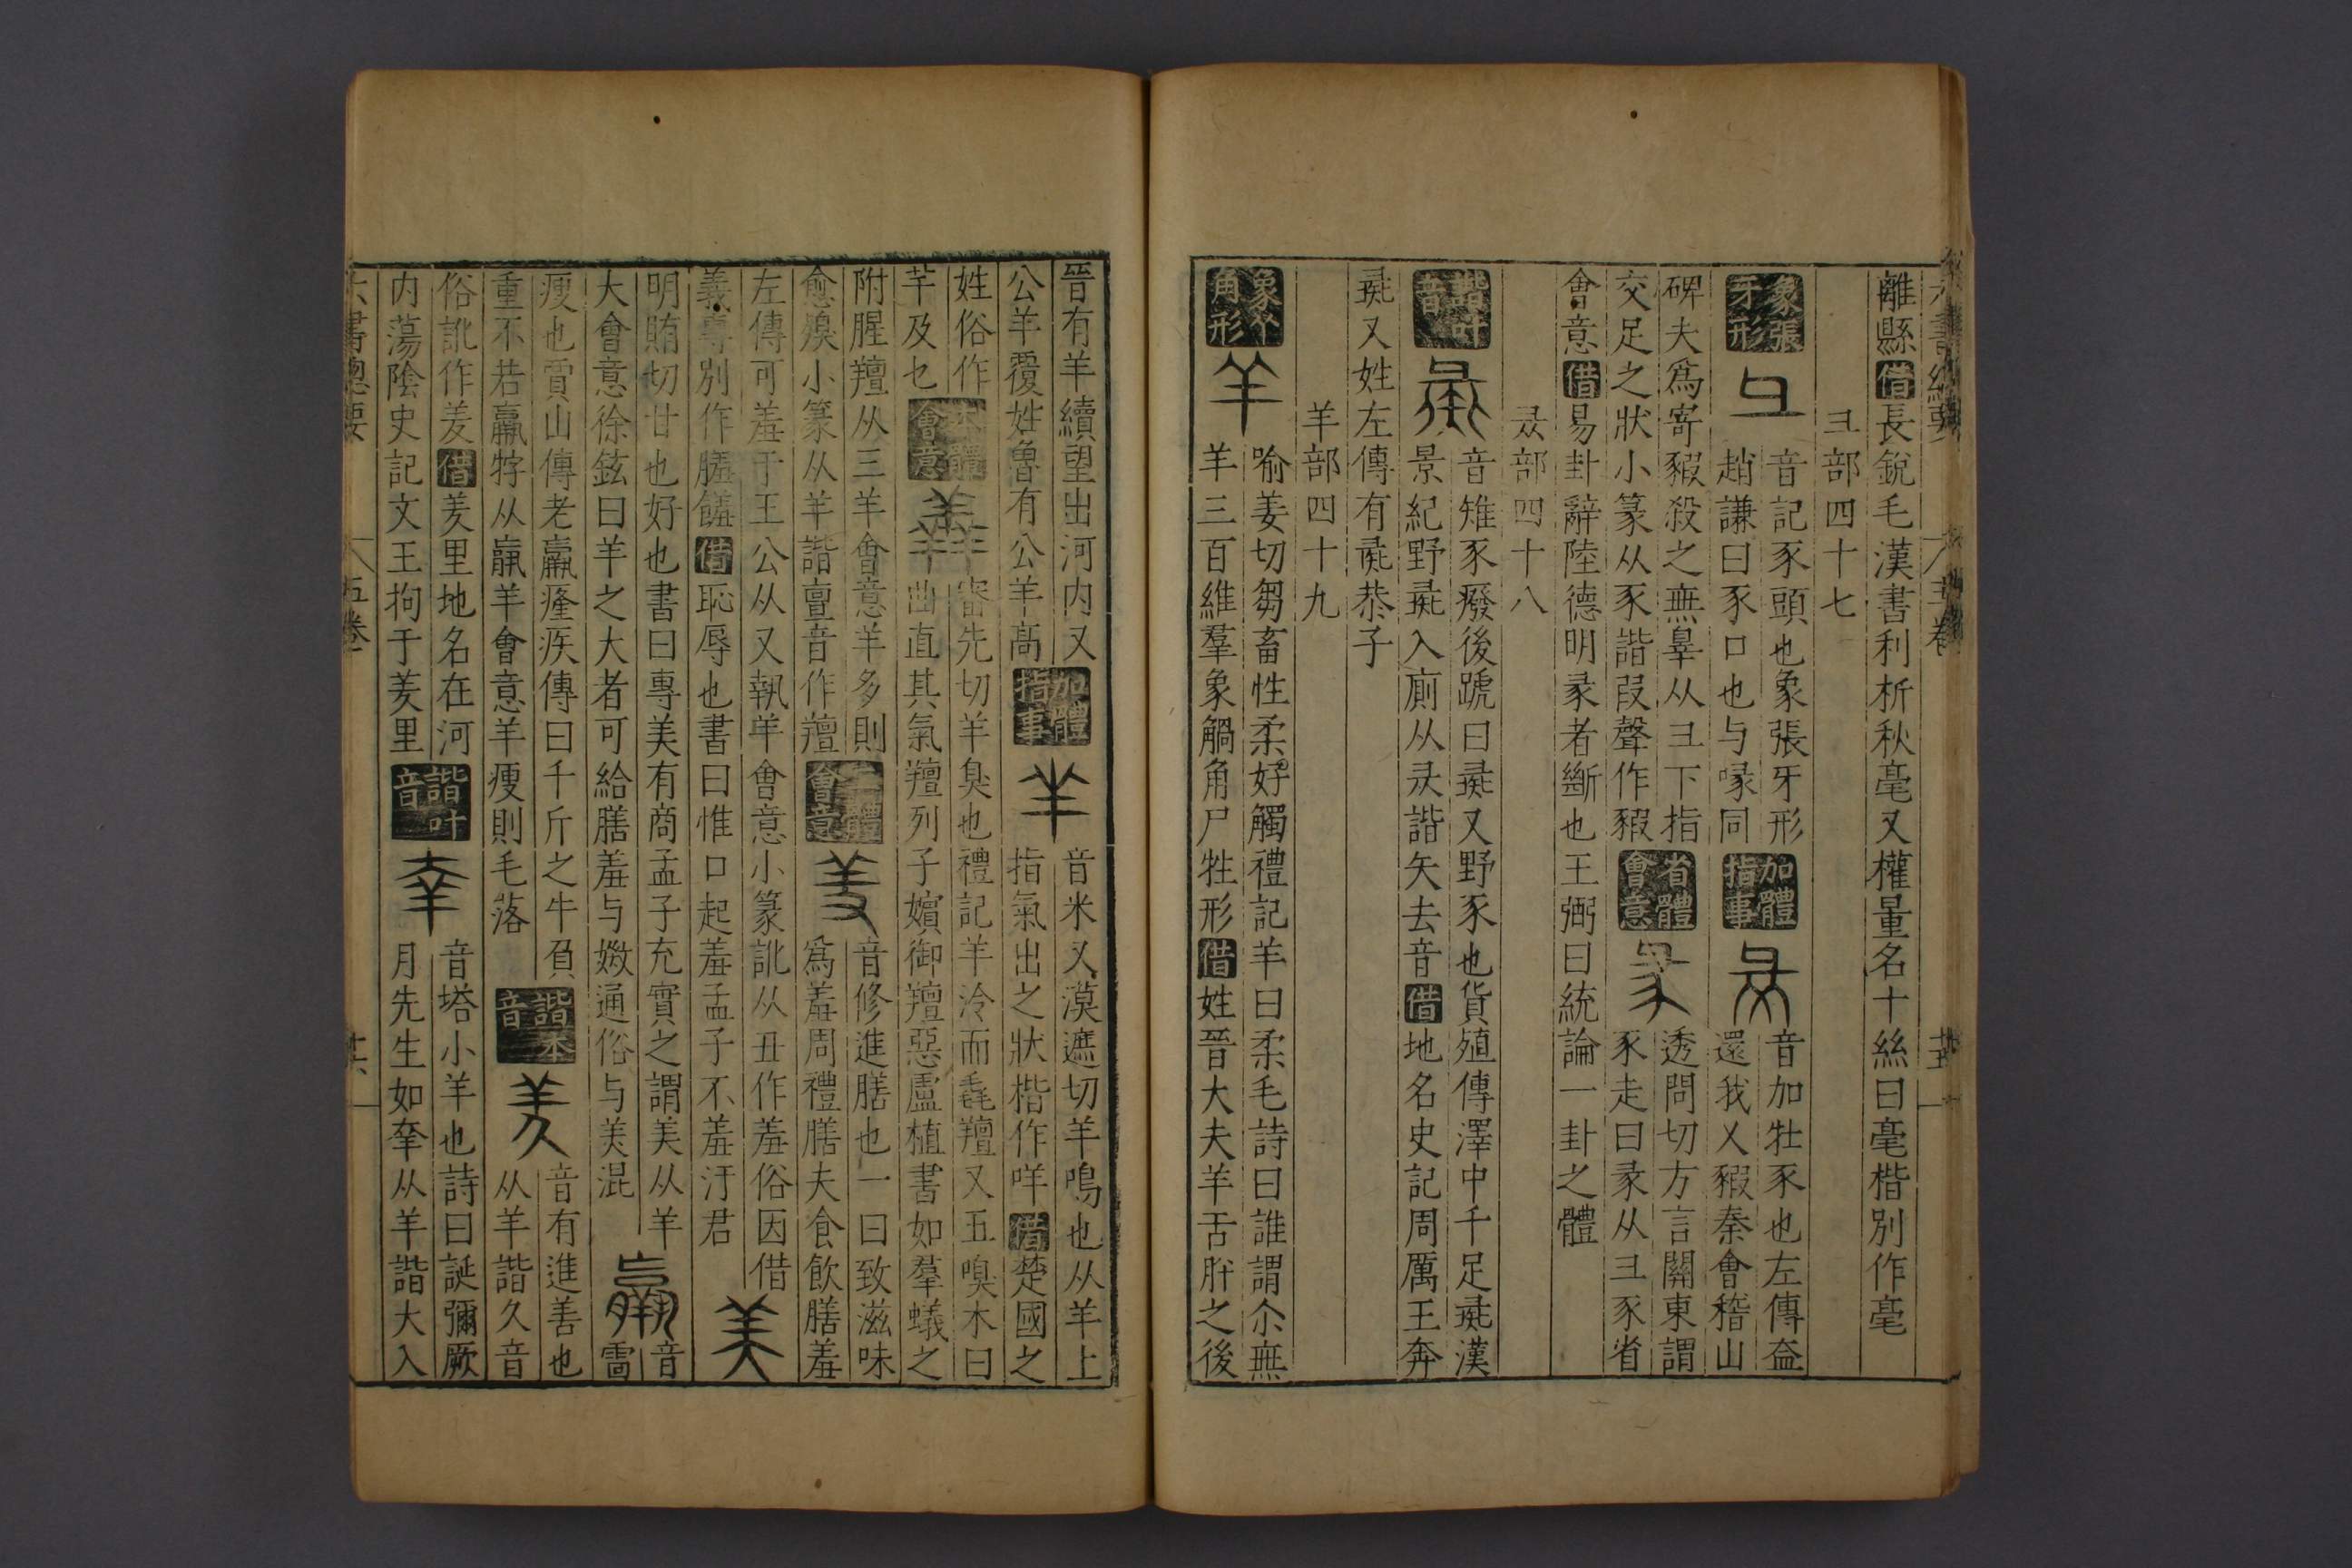 離縣借長銳毛漢書利析秋毫又權量名十絲曰毫楷別作毫
彐部四十七
象張牙形 彑 音記豕頭也象張牙形
趙謙曰豕口也与喙同 加體指事 音加牡豕也左傳益
還我乂豭秦會稽山
碑夫爲寄豭殺之無辠从彐下指
交足之狀小篆从豕諧叚聲作豭 省體會意 彖 透問切方言關東謂
豕走曰彖从彐豕省
會意借易卦辭陸德明彖者斷也王弼曰統論一卦之體
部四十八
諧叶音 彘 音雉豕癈後蹏曰彘又野豕也貨殖傳澤中千足彘漢
景紀野彘入廁从 諧矢去音借地名史記周厲王奔
彘又姓左傳有彘恭子
羊部四十九
象个角形 羊 喻姜切芻畜性柔好觸禮記羊曰柔毛詩曰誰謂尒無
羊三百維羣象觿角尸牲形借姓晉大夫羊舌肸之後
晉有羊續望出河内又
公羊覆姓魯有公羊高 加體指事 羋 音米又漠遮切羊鳴也从羊上
指氣出之狀楷作咩借楚國之
姓俗作
芊及乜 本體會意 羴 審先切羊臭也禮記羊泠而毳羶又五嗅木曰
曲直其氣羶列子嬪御羶惡盧植書如羣蟻之
附腥羶从三羊會意羊多則
愈 小篆从羊諧亶音作羶 二體會意 羞 音修進膳也一曰致滋味
爲羞周禮膳夫食飲膳羞
左傳可羞于王公从又執羊會意小篆訛从丑作羞俗因借
義專別作膳饈借恥辱也書曰惟口起羞孟子不羞汙君 美
明賄切甘也好也書曰專美有商孟子充實之謂美从羊
大會意徐鉉曰羊之大者可給膳羞与媺通俗与羙混 羸 音雷
瘦也賈山傳老羸癃疾傳曰千斤之牛負
重不若羸牸从㒩羊會意羊瘦則毛落 諧本音 羑 音有進善也
从羊諧久音
俗訛作羑借羑里地名在河
内蕩陰史記文王拘于羑里 諧叶音 羍 音塔小羊也詩曰誕彌厥
月先生如羍从羊諧大入
六書總要 五卷